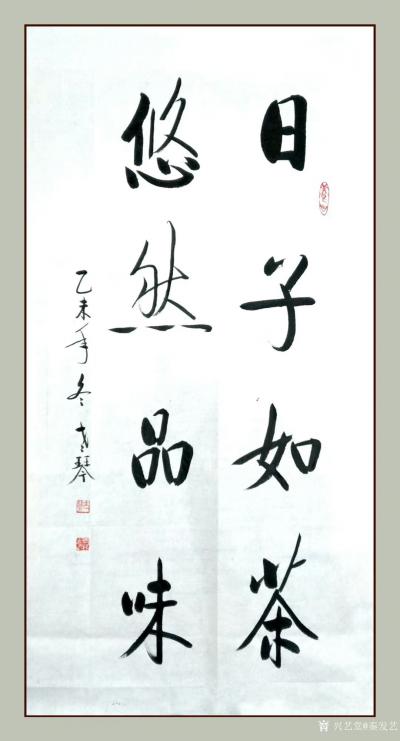 日子如茶
悠然品味
乙未年冬
琴
兴艺堂@秦发艺